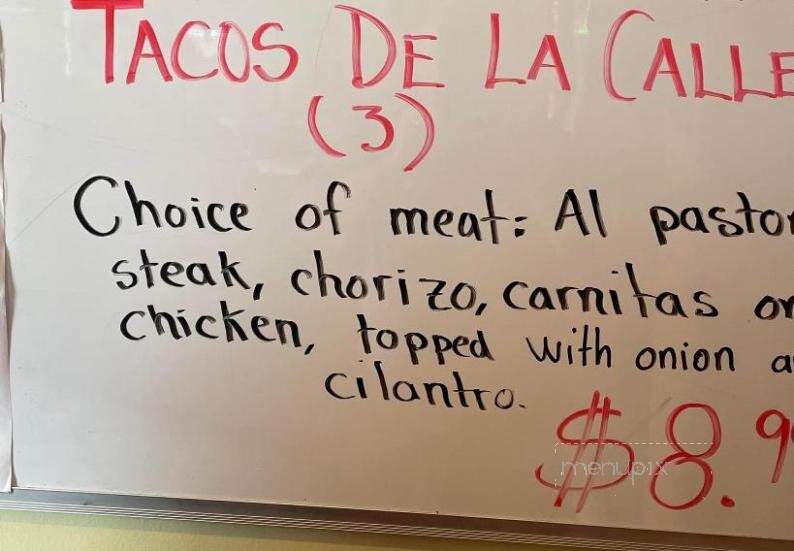 TACOS DE LA CALLE
(3)
Choice of meat: Al pastor
steak, chorizo, carnitas or
chicken, topped with onion a
cilantro.
$8.9
menupix